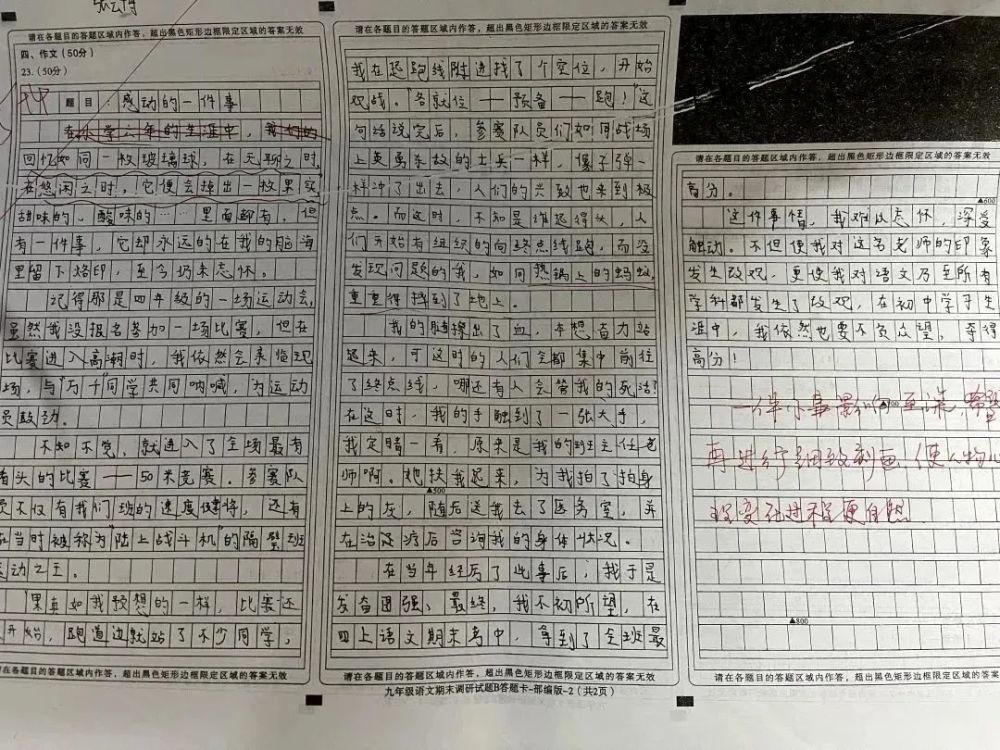 请在各题目的答题区域内作答，超出黑色矩形边框限定区域的答案无效
四、作文（50分）
23.（50分）
题目：感动的一件事
在小学六年的生涯中，我们的
回忆如同一枚玻璃球，在无聊之时，
在悠闲之时，它便会掉出一枚果实
甜味的、酸味的……里面都有，但
有一件事，它却永远的在我的脑海
里留下烙印，至今仍未忘怀。
记得那是四年级的一场运动会，
虽然我没报名参加一场比赛，但在
比赛进入高潮时，我依然会来临现
场，与"万千"同学共同呐喊，为运动
员鼓动。
不知不觉，就进入了全场最有
看头的比赛——50米竞赛。参赛队
员不仅有我们班的速度健将，还有
在当时被称为"陆上战斗机"的隔壁班
运动之王。
果真如我预想的一样，比赛还
开始，跑道边就站了不少同学，
请在各题目的答题区域内作答，超出黑色矩形边框限定区域的答案无效
请在各题目的答题区域内作答，超出黑色矩形边框限定区域的答案无效
我在起跑线附近找了个空位，开始
观战。"各就位——预备——跑！"这
句话说完后，参赛队员们如同战场
上英勇杀敌的士兵一样，像子弹一
样冲了出去，人们的兴致也来到极
点。而这时，不知是谁起得头，人
们开始有组织的向终点线跑，而没
发现问题的我，如同热锅上的蚂蚁，
重重得摔到了地上。
我的膝擦出了血，本想奋力站
起来，可这时的人们全都集中前往
了终点线，哪还有人会管我的死活？
在这时，我的手触到了一张大手，
我定睛一看，原来是我的班主任老
师啊。她扶我起来，为我拍了拍身
▲500
上的灰，随后送我去了医务室，并
在治疗后咨询我的身体状况。
在当年经历了此事后，我于是
发奋图强、最终，我不初所望，在
四上语文期末考中，拿到了全班最
请在各题目的答题区域内作答，超出黑色矩形边框限定区域的答案无效
九年级语文期末调研试题B答题卡-部编版-2（共2页）
请在各题目的答题区域内作答，超出黑色矩形边框限定区域的答案无效
高分。
▲600
这件事情，我难以忘怀，深受
触动。不但使我对这名老师的印象
发生改观，更使我对语文乃至所有
学科都发生了改观，在初中学子生
涯中，我依然也要不负众望，夺得
高分！
一件小事影响至深，希望
再进行细致刻画，使人物心
理变化过程更自然
▲800
请在各题目的答题区域内作答，超出黑色矩形边框限定区域的答案无效